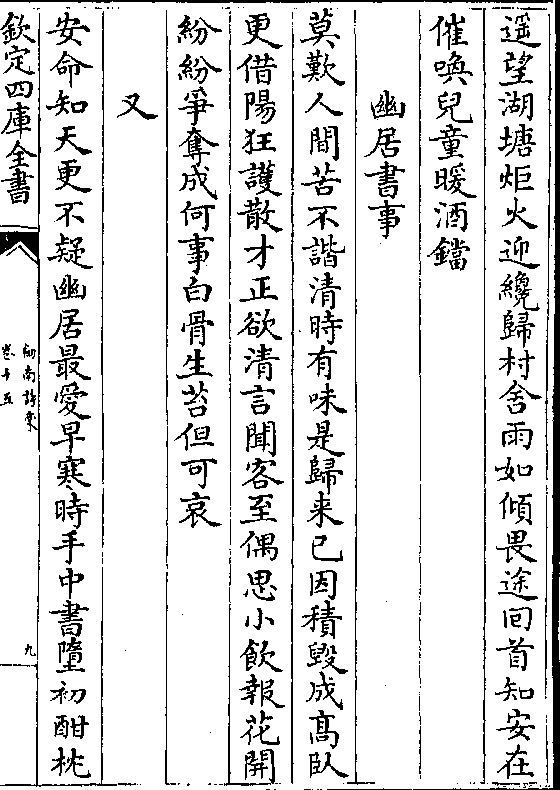 遥望湖塘炬火迎纔歸村舍雨如傾畏途回首知安在
催喚兒童暖酒鐺
幽居書事
莫歎人間苦不諧清時有味是歸来已因積毀成髙臥
更借陽狂護散才正欲清言聞客至偶思小飲報花開
紛紛爭奪成何事白骨生苔但可哀
又
安命知天更不疑幽居最愛早寒時手中書墮初酣枕
欽定四庫全書
劍南詩稾
卷十五
九